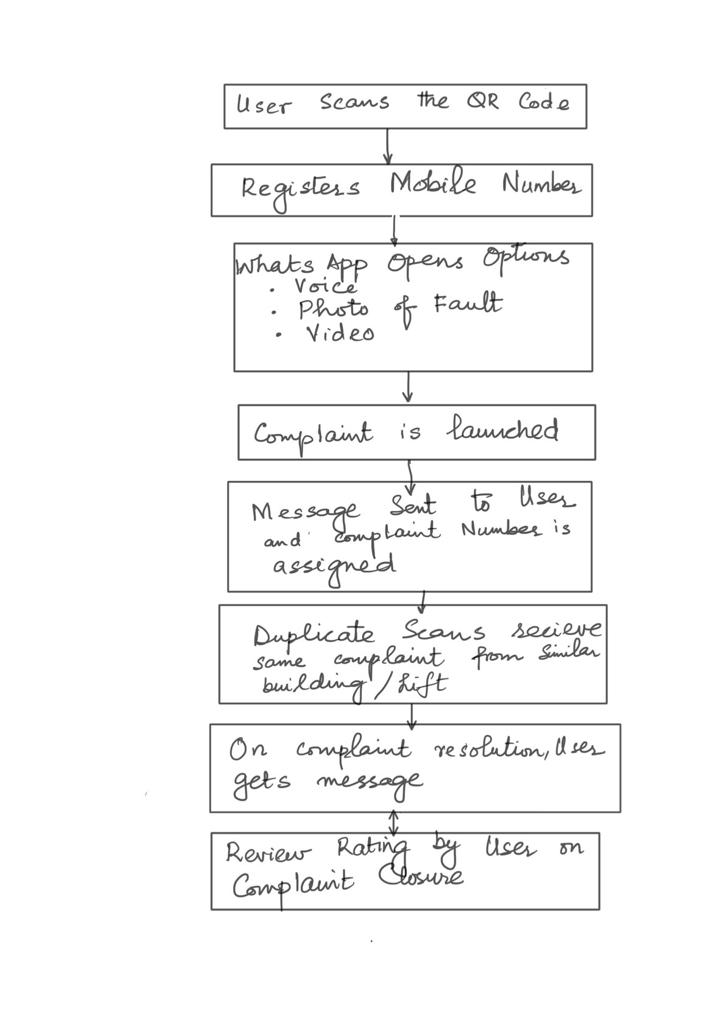 User Scans the QR Code
Registers Mobile Number
Whats App Opens Options
• Voice
• Photo of Fault
• Video
Complaint is launched
Message Sent to User
and complaint Number is
assigned
Duplicate Scans recieve
same complaint from similar
building / Lift
On complaint resolution, User
gets message
Review Rating by User on
Complaint Closure